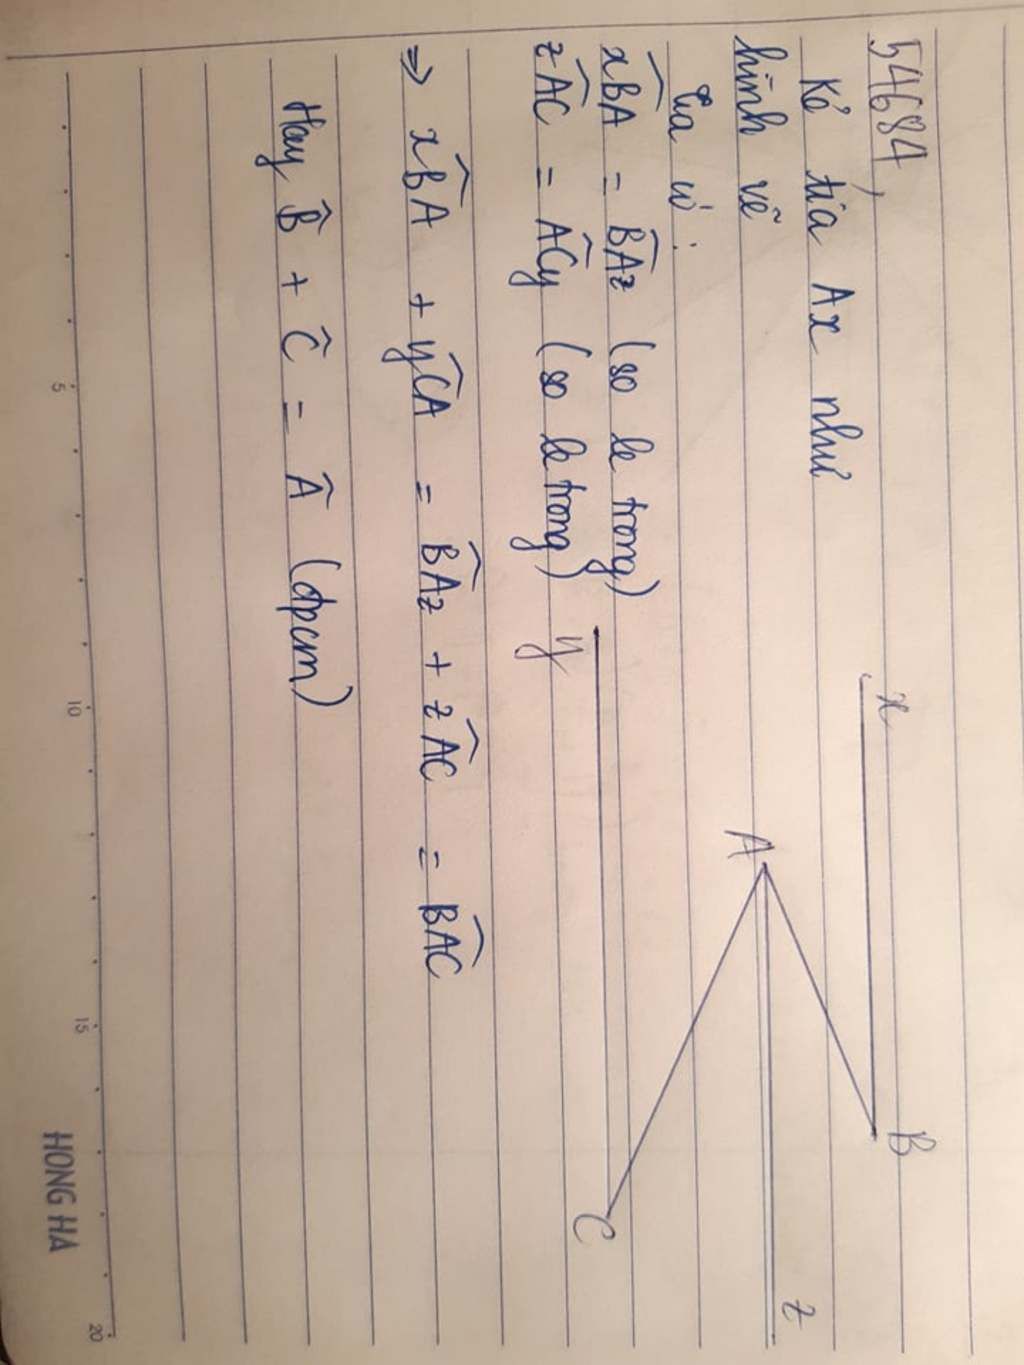 54684,
Kẻ tia Ax như
hình vẽ
Ta có :
x
B
A
z
xBA = BAz (so le trong)
zAC = ACy (so le trong)
y
C
=> xBA + yCA = BAz + zAC = BAC
Hay B̂ + Ĉ = Â (đpcm)
5
10
15
20
HONG HA